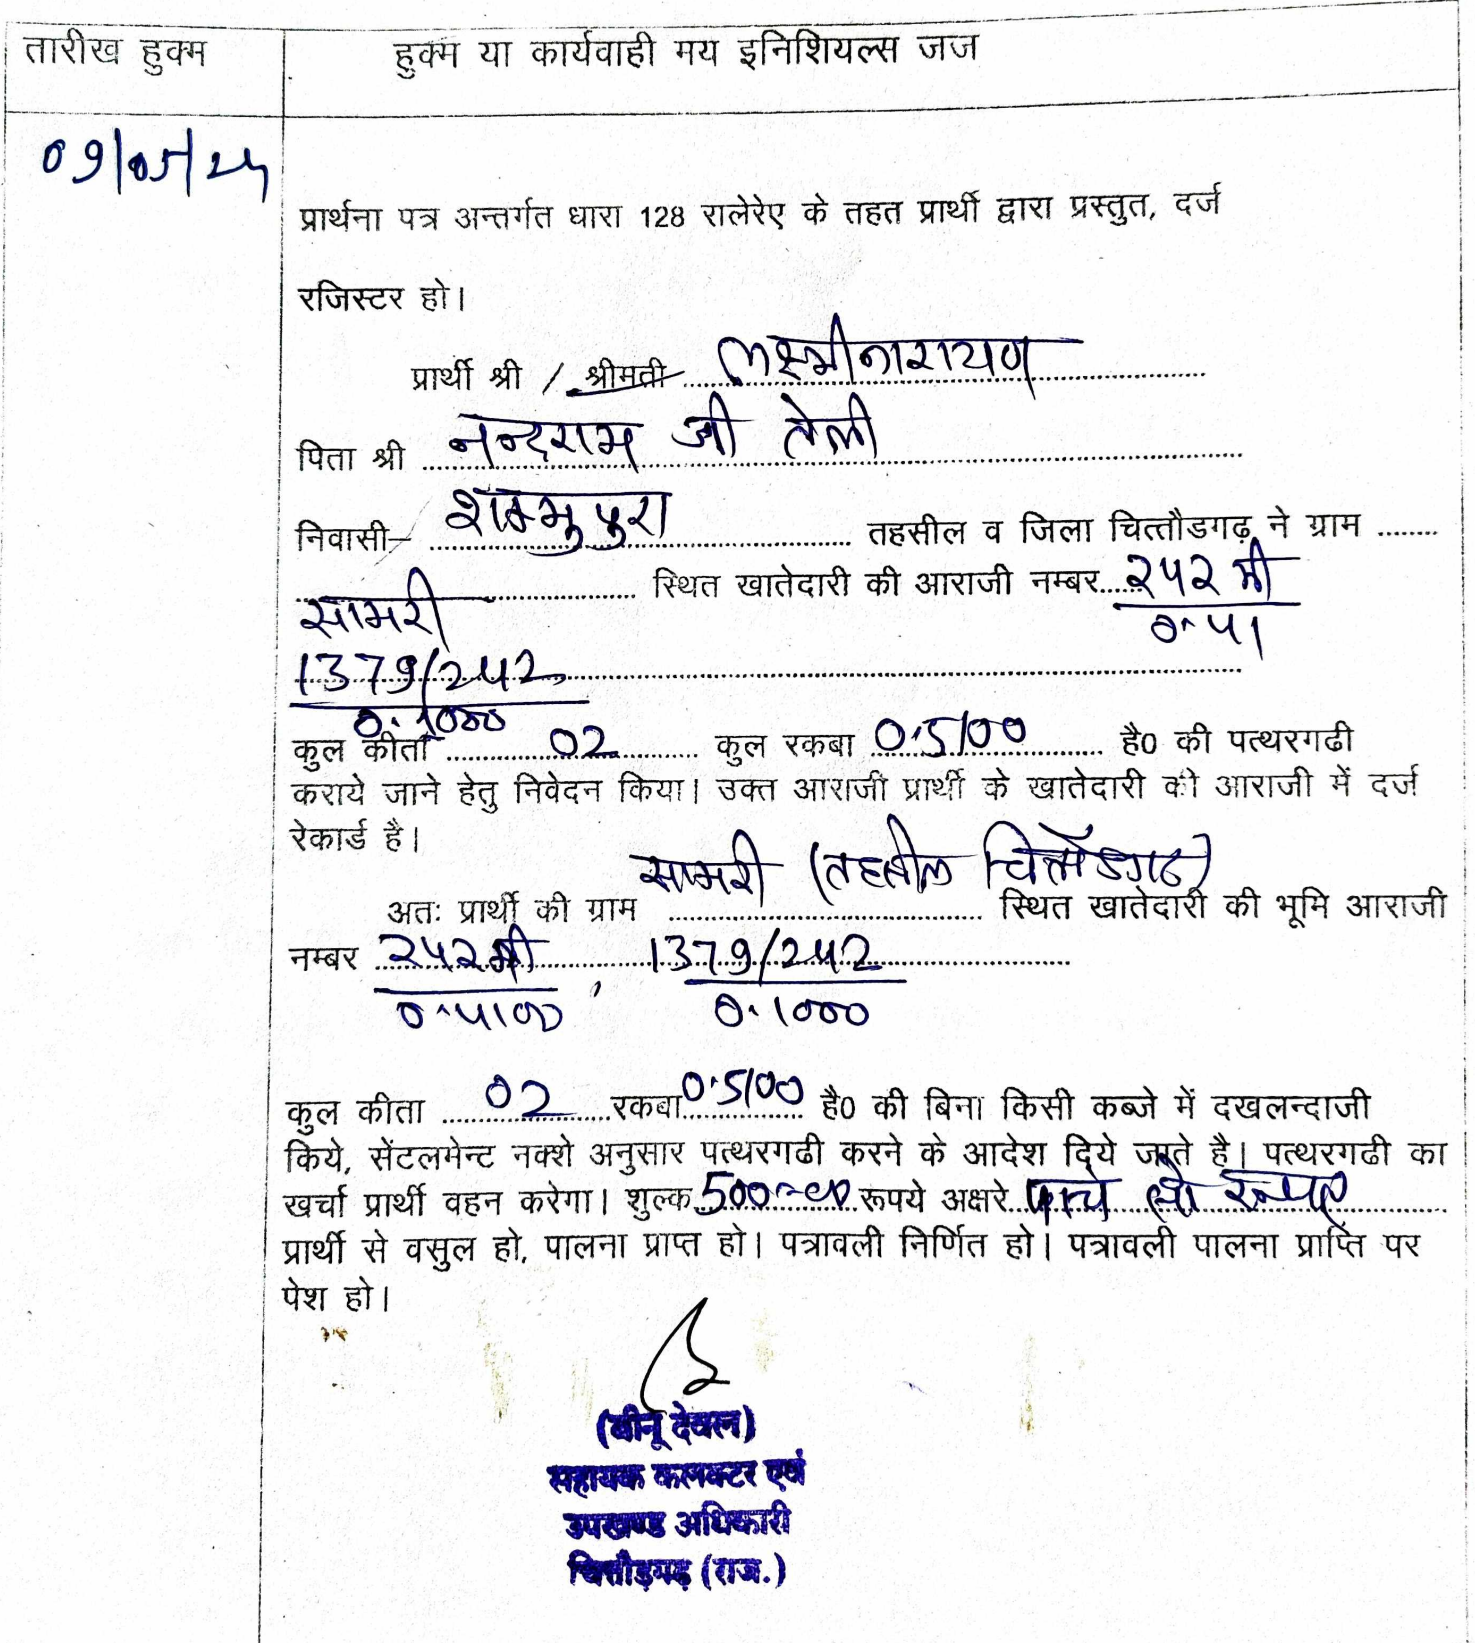 तारीख हुक्म
हुक्म या कार्यवाही मय इनिशियल्स जज
09/05/24
प्रार्थना पत्र अन्तर्गत धारा 128 रालेरेए के तहत प्रार्थी द्वारा प्रस्तुत, दर्ज
रजिस्टर हो।
प्रार्थी श्री / श्रीमती लक्ष्मीनारायण
पिता श्री नन्दराम जी तेली
निवासी- शम्भुपुरा तहसील व जिला चित्तौडगढ़ ने ग्राम ........
सामरी स्थित खातेदारी की आराजी नम्बर २५२ मी
०.५1
1379/२५२
0.1000
कुल कीता 02 कुल रकबा 0.5100 है0 की पत्थरगढी
कराये जाने हेतु निवेदन किया। उक्त आराजी प्रार्थी के खातेदारी की आराजी में दर्ज
रेकार्ड है।
अतः प्रार्थी की ग्राम सामरी (तहसील चित्तौडगढ) स्थित खातेदारी की भूमि आराजी
नम्बर २५२मी, 1379/२५२
०.५100 0.1000
कुल कीता 02 रकबा 0.5100 है0 की बिना किसी कब्जे में दखलन्दाजी
किये, सेंटलमेन्ट नक्शे अनुसार पत्थरगढी करने के आदेश दिये जाते है। पत्थरगढी का
खर्चा प्रार्थी वहन करेगा। शुल्क 500 रूपये अक्षरे पांच सो रूपए
प्रार्थी से वसुल हो, पालना प्राप्त हो। पत्रावली निर्णित हो। पत्रावली पालना प्राप्ति पर
पेश हो।
(बीनू देवल)
सहायक कलक्टर एवं
उपखण्ड अधिकारी
चित्तौड़गढ़ (राज.)